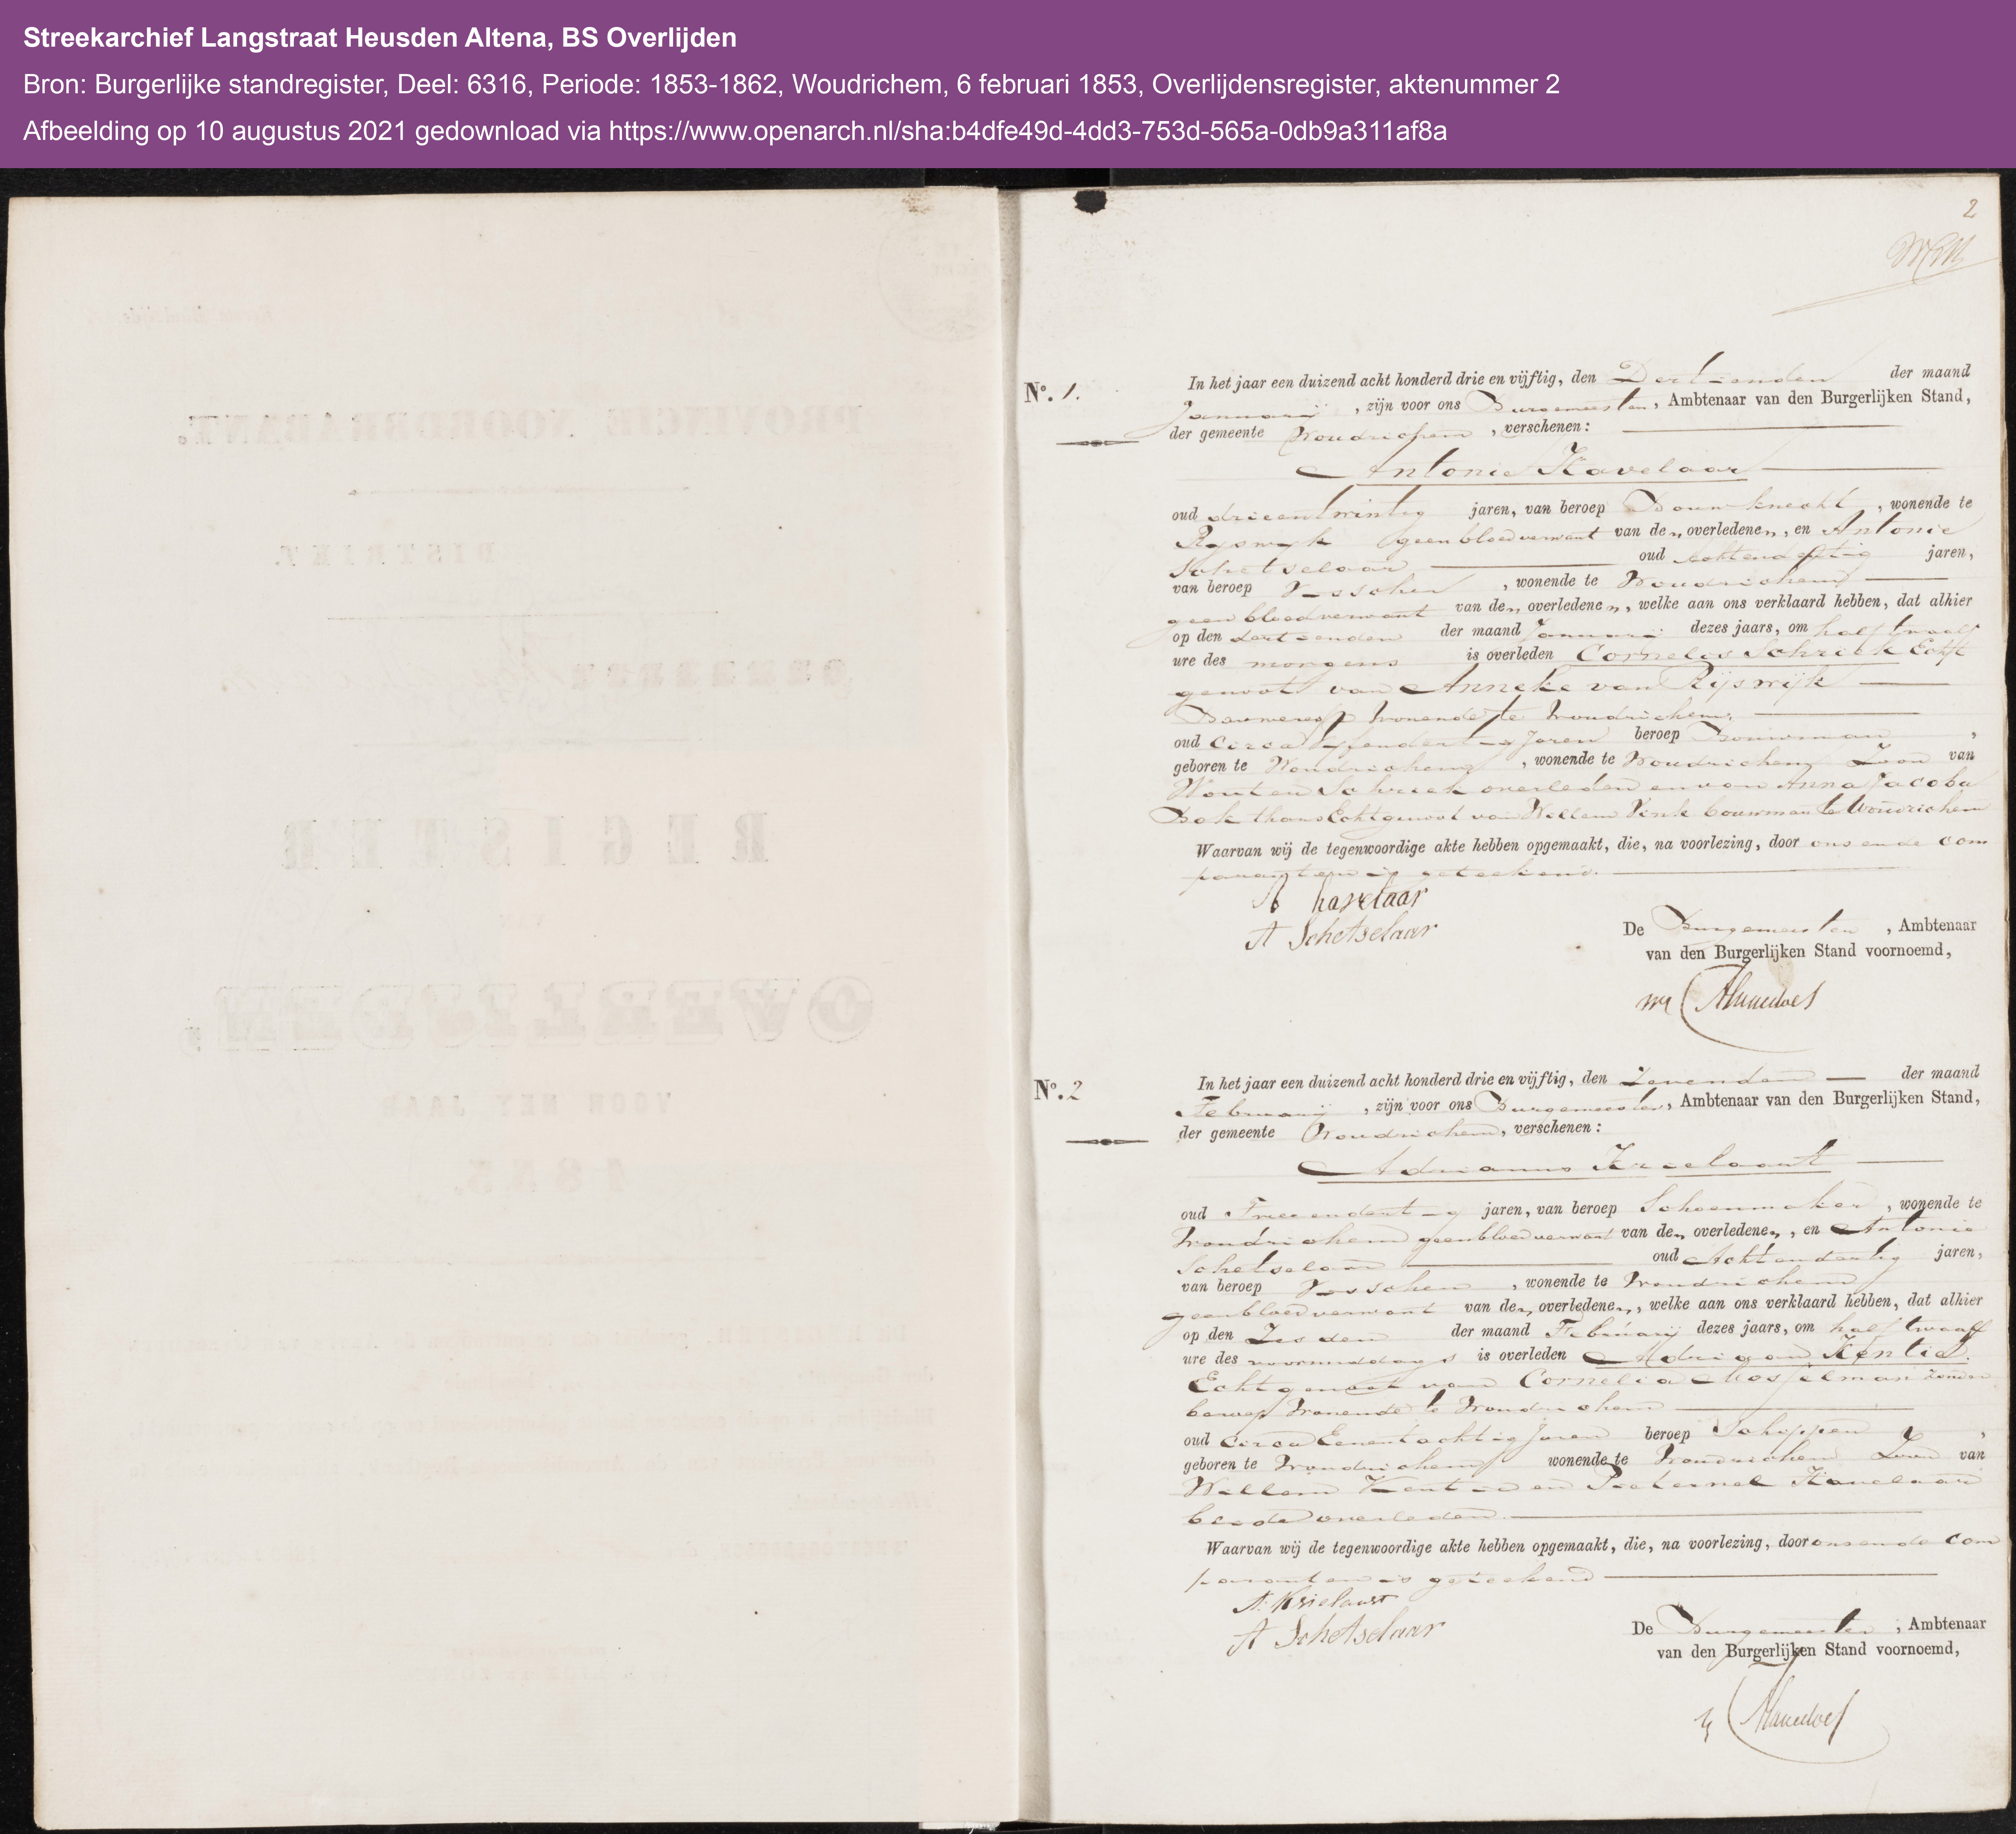 Streekarchief Langstraat Heusden Altena, BS Overlijden
Bron: Burgerlijke standregister, Deel: 6316, Periode: 1853-1862, Woudrichem, 6 februari 1853, Overlijdensregister, aktenummer 2
Afbeelding op 10 augustus 2021 gedownload via https://www.openarch.nl/sha:b4dfe49d-4dd3-753d-565a-0db9a311af8a
2
PROVINCIE NOORDBRABANT.
DISTRIKT.
GEMEENTE
REGISTER
VAN
OVERLIJDEN,
VOOR HET JAAR
1853.
No. 1.
In het jaar een duizend acht honderd drie en vijftig, den Dertienden der maand
Januarij, zijn voor ons Burgemeester, Ambtenaar van den Burgerlijken Stand,
der gemeente Woudrichem, verschenen:
Antonie Havelaar
oud drieentwintig jaren, van beroep Bouwknecht, wonende te
Rijswijk geen bloedverwant van den overledenen, en Antonie
Schetselaar oud Achtendertig jaren,
van beroep Visscher, wonende te Woudrichem
geen bloedverwant van den overledenen, welke aan ons verklaard hebben, dat alhier
op den dertienden der maand Januarij dezes jaars, om half twaalf
ure des morgens is overleden Cornelis Schriek Echt
genoot van Anneke van Rijswijk
Bouwersse wonende te Woudrichem,
oud circa Jaren beroep Bouwman,
geboren te Woudrichem, wonende te Woudrichem Zoon van
Wouter Schriek overleden en van Anna Jacoba
Bok thans Echtgenoot van Willem Vink bouwman te Woudrichem
Waarvan wij de tegenwoordige akte hebben opgemaakt, die, na voorlezing, door ons en de com
paranten is geteekend.
A havelaar
A Schetselaar
De Burgemeester, Ambtenaar
van den Burgerlijken Stand voornoemd,
No. 2
In het jaar een duizend acht honderd drie en vijftig, den Zevenden der maand
Februarij, zijn voor ons Burgemeester, Ambtenaar van den Burgerlijken Stand,
der gemeente Woudrichem, verschenen:
Adrianus Krielaart
oud Tweeendertig jaren, van beroep Schoenmaker, wonende te
Woudrichem geen bloedverwant van den overledenen, en Antonie
Schetselaar oud Achtendertig jaren,
van beroep Visscher, wonende te Woudrichem
geen bloedverwant van den overledenen, welke aan ons verklaard hebben, dat alhier
op den Zesden der maand Februarij dezes jaars, om half twaalf
ure des voormiddags is overleden Adriaan Kentie
Echtgenoot van Cornelia Mosselman zonder
beroep Wonende te Woudrichem
oud circa Eenentachtig Jaren beroep Schipper,
geboren te Woudrichem wonende te Woudrichem Zoon van
Willem Kentie en Pieternel Havelaar
beide overleden.
Waarvan wij de tegenwoordige akte hebben opgemaakt, die, na voorlezing, door ons en de com
paranten is geteekend
A. Krielaart
A Schetselaar
De Burgemeester, Ambtenaar
van den Burgerlijken Stand voornoemd,